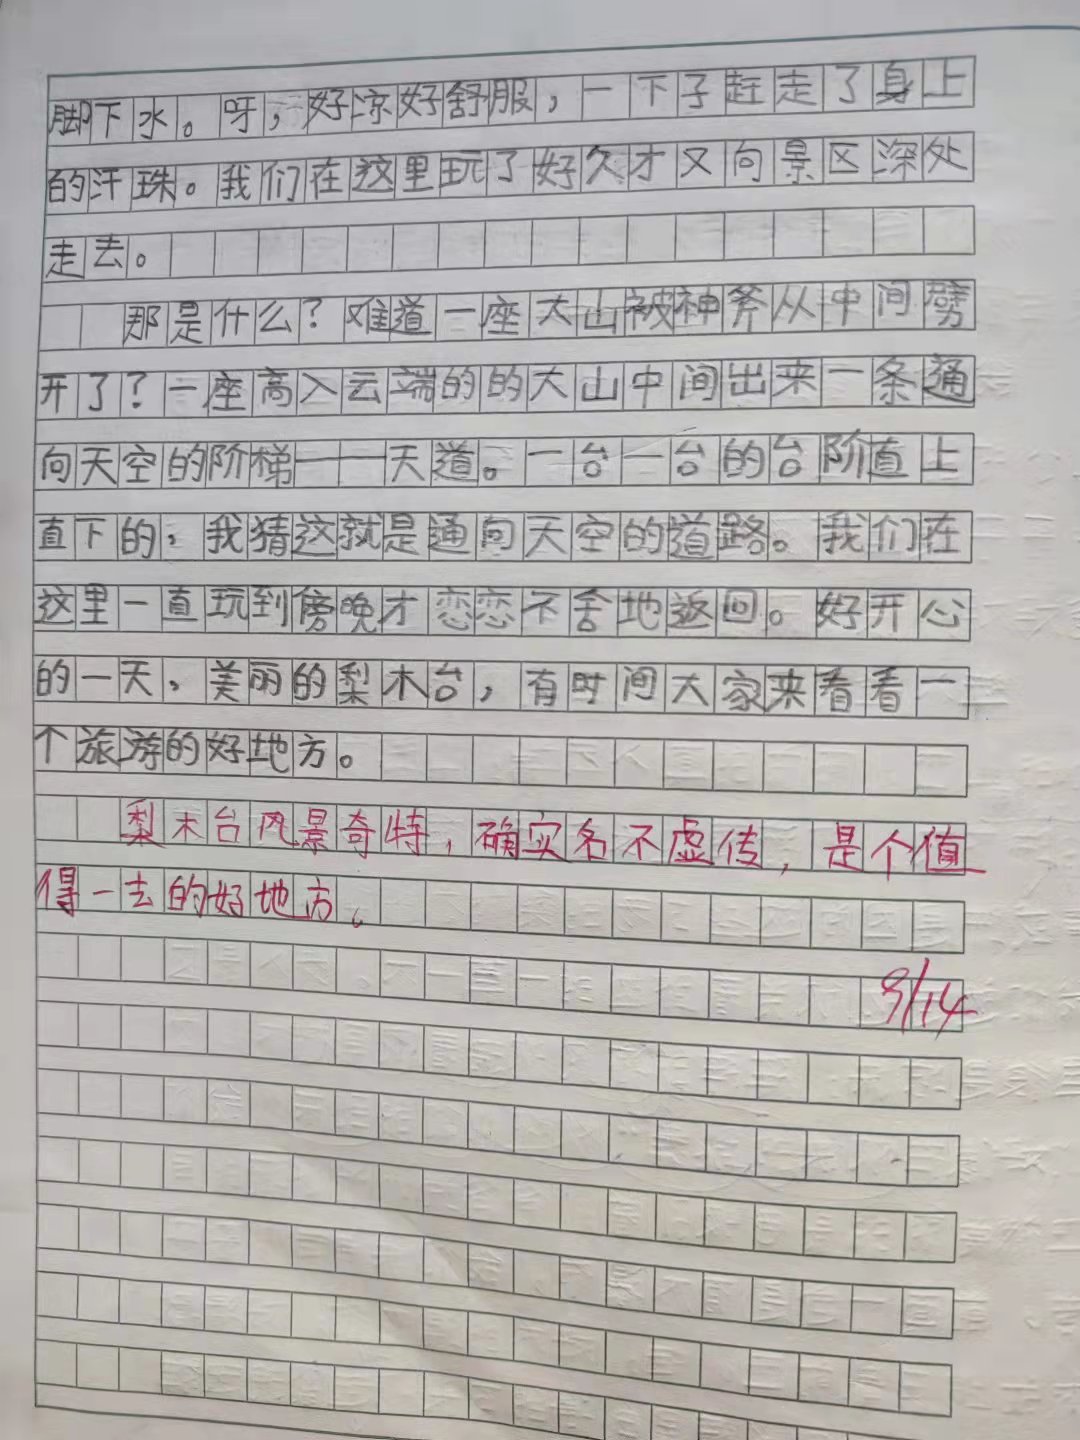 脚下水。呀，好凉好舒服，一下子赶走了身上
的汗珠。我们在这里玩了好久才又向景区深处
走去。
那是什么？难道一座大山被神斧从中间劈
开了？一座高入云端的的大山中间出来一条通
向天空的阶梯——天道。一台一台的台阶直上
直下的，我猜这就是通向天空的道路。我们在
这里一直玩到傍晚才恋恋不舍地返回。好开心
的一天，美丽的梨木台，有时间大家来看看一
个旅游的好地方。
梨木台风景奇特，确实名不虚传，是个值
得一去的好地方。
9/14